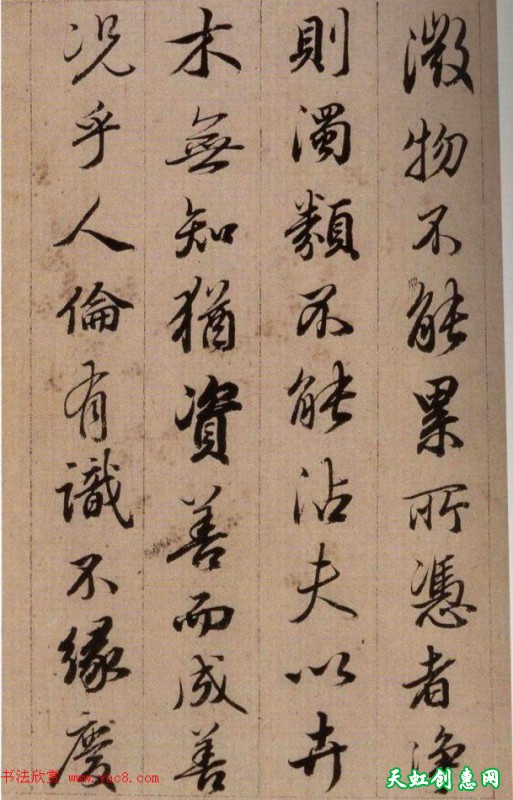 微物不能累所憑者浄
則濁類不能沾夫以卉
木無知猶資善而成善
况乎人倫有識不緣慶
书法欣赏 www.yac8.com
天虹创惠网